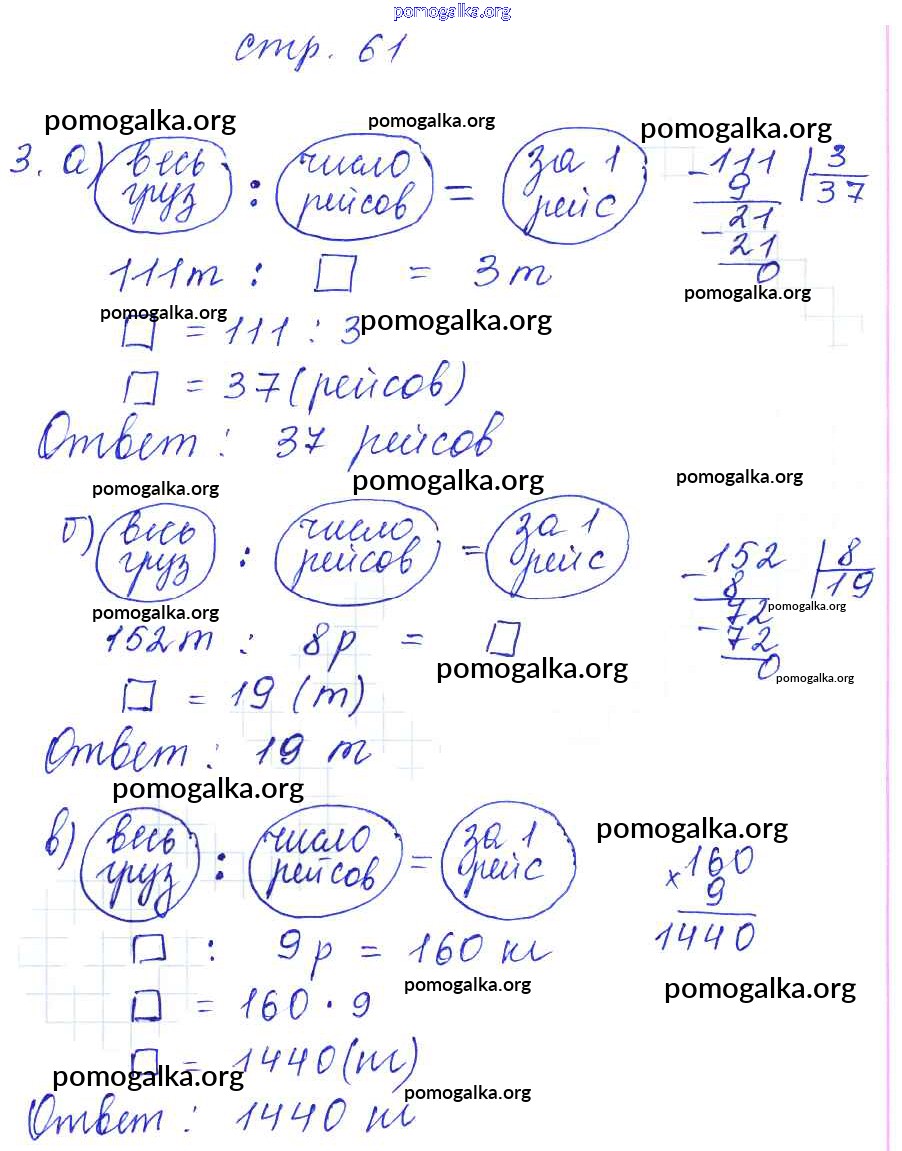 pomogalka.org
стр. 61
pomogalka.org pomogalka.org pomogalka.org
3. а) весь груз : число рейсов = за 1 рейс
111 | 3
- 9 37
21
- 21
0
111 т : □ = 3 т
pomogalka.org
pomogalka.org
□ = 111 : 3 pomogalka.org
□ = 37 (рейсов)
Ответ : 37 рейсов
pomogalka.org pomogalka.org pomogalka.org
б) весь груз : число рейсов = за 1 рейс
152 | 8
- 8 19
72
- 72
0
pomogalka.org pomogalka.org
152 т : 8 р = □
pomogalka.org pomogalka.org
□ = 19 (т)
Ответ : 19 т
pomogalka.org
в) весь груз : число рейсов = за 1 рейс
pomogalka.org
160
x 9
1440
□ : 9 р = 160 кг
pomogalka.org pomogalka.org
□ = 160 · 9
□ = 1440 (кг)
pomogalka.org pomogalka.org
Ответ : 1440 кг